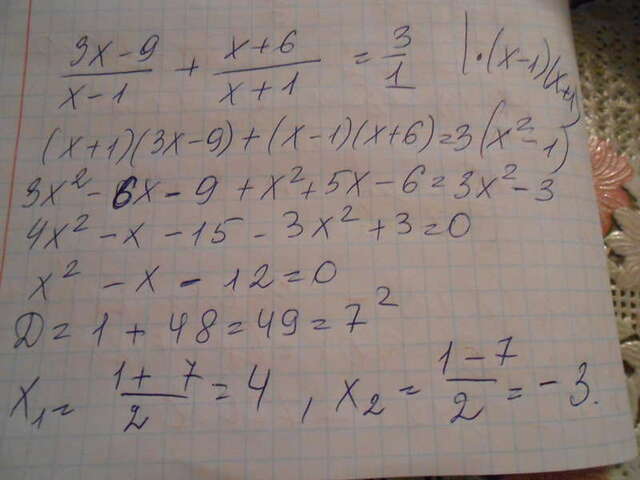 (3x-9)/(x-1) + (x+6)/(x+1) = 3/1 | ·(x-1)(x+1)
(x+1)(3x-9)+(x-1)(x+6)=3(x²-1)
3x²-6x-9+x²+5x-6=3x²-3
4x²-x-15-3x²+3=0
x²-x-12=0
D=1+48=49=7²
x₁=(1+7)/2=4, x₂=(1-7)/2=-3.